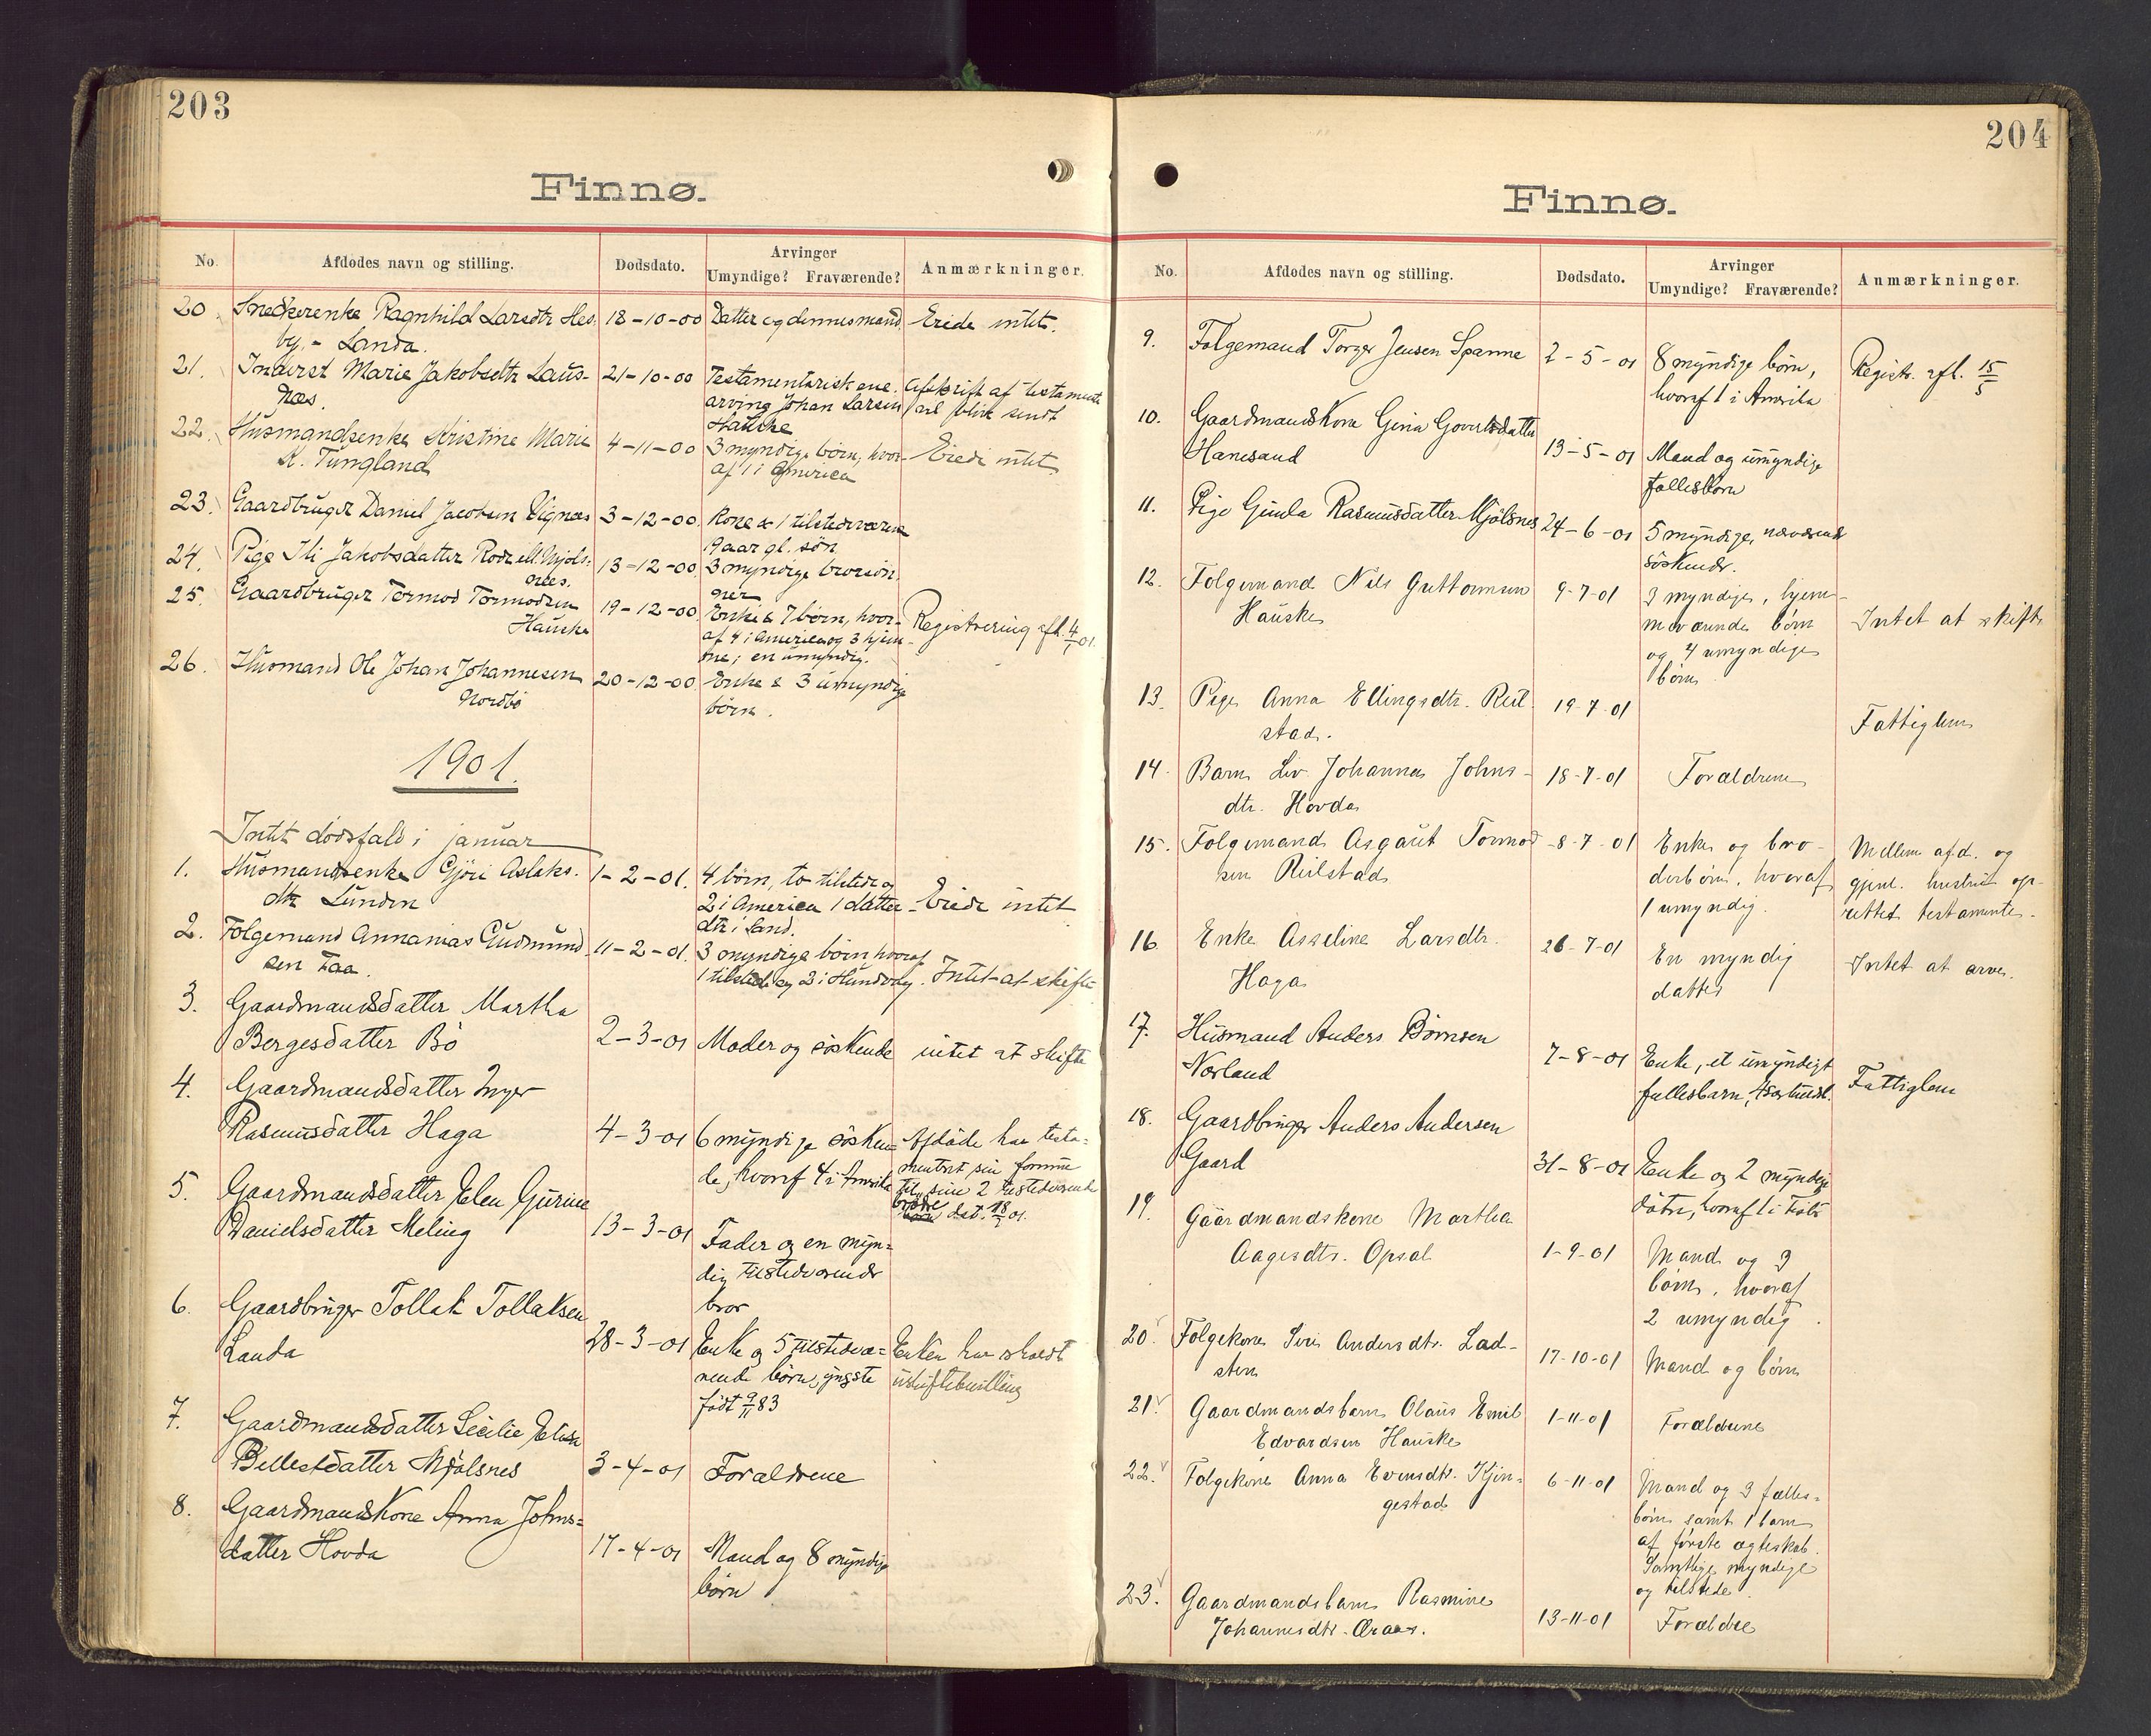 203
Finnø.
No. Afdødes navn og stilling. Dødsdato. Arvinger Umyndige? Fraværende? Anmærkninger.
20. Snedkerenke Ragnhild Larsdtr Hes- 18-10-00 Datter og dennes mand Eiede intet.
by. - Landa.
21. Inderst Marie Jakobsdtr Laus- 21-10-00 Testamentarisk ene- Afskrift af testamente
næs. arving Johan Larsen vil blive sendt
Hauske
22. Husmandsenke Kristine Marie 4-11-00 3 myndige børn, hvor- Eiede intet
K. Tungland af 1 i America
23. Gaardbruger Daniel Jacobsen Vignæs 3-12-00. Kone & 1 tilstedeværen
9 aar gl. søn
24. Pige Ili Jakobsdatter Mjøls- 13-12-00. 3 myndige brorsøn
næs. ner
25. Gaardbruger Tormod Tormodsen 19-12-00 Enke & 7 børn, hvor- Registrering afh. 4/1 01.
Hauske af 4 i America og 3 hjem-
me; en umyndig.
26. Husmand Ole Johan Johannesen 20-12-00 Enke & 3 umyndige
Nordbø børn.
1901.
Intet dødsfald i januar
1. Husmandsenke Gjøri Aslaks- 1-2-01. 4 børn, to tilstede og
dtr Lunden 2 i America 1 datter- Eiede intet
dtr i Sand.
2. Folgemand Annanias Gudmund 11-2-01. 3 myndige børn, hvoraf
sen Faa. 1 tilstede og 2 i Hundvaag. Intet at skifte
3. Gaardmandsdatter Martha
Bergesdatter Bø 2-3-01 Moder og søskende intet at skifte
4. Gaardmandsdatter Inger
Rasmusdatter Haga 4-3-01 6 myndige søsken- Afdøde har testa-
de, hvoraf 4 i Amerika mentert sin formue
til sine 2 tilstedeværende
brødre dat. 18/1 01.
5. Gaardmandsdatter Elen Gurine
Danielsdatter Meling 13-3-01 Fader og en myn-
dig tilstedeværende
bror
6. Gaardbruger Tollak Tollaksen
Landa 28-3-01 Enke og 5 tilstedevæ- Enken har
rende børn, yngste uskiftebevilling
født 9/11 83
7. Gaardmandsdatter Secilie Elisa
Bellestdatter Mjølsnes 3-4-01 Forældrene
8. Gaardmandskone Anna Johns-
datter Hovda 17-4-01 Mand og 8 myndige
børn
204
Finnø.
No. Afdødes navn og stilling. Dødsdato. Arvinger Umyndige? Fraværende? Anmærkninger.
9. Folgemand Torger Jensen Spanne 2-5-01 8 myndige børn, Registr. afh. 15/5
hvoraf 1 i Amerika
10. Gaardmandskone Gina Govertsdatter
Hanesand 13-5-01 Mand og umyndige
fællesbørn
11. Pige Gunla Rasmusdatter Mjølsnes 24-6-01 5 myndige, nærværende
søskende.
12. Folgemand Nils Guttormsen 9-7-01 3 myndige, hjemme-
Hauske værende børn Intet at skifte
og 4 umyndige
børn
13. Pige Anna Ellingsdtr. Reil- 19-7-01
stad. Fattiglem
14. Barn Liv Johanna Johns- 18-7-01 Forældrene
dtr. Hovda
15. Folgemand Asgaut Tormod- 8-7-01 Enke og bro- Mellem afd. og
sen Reilstad derbørn, hvoraf gjenl. hustru op-
1 umyndig. rettet testamente.
16 Enke Asseline Larsdtr. 26-7-01 En myndig Intet at arve.
Haga datter
17. Husmand Anders Bjørnsen
Norland 7-8-01 Enke, et umyndigt
fællesbarn, Fattiglem
18. Gaardbruger Anders Andersen
Gaard 31-8-01 Enke og 2 myndige
døtre, hvoraf 1 i
19. Gaardmandskone Martha
Aagesdtr. Opsal 1-9-01 Mand og 3
børn, hvoraf
2 umyndig.
20. Folgekone Siri Andersdtr. Lad-
sten 17-10-01 Mand og børn
21. Gaardmandsbarn Olaus Emil 1-11-01 Forældrene
Edvardsen Hauske
22. Folgekone Anna Evensdtr. Kjin- 6-11-01 Mand og 3 fælles-
gestad børn samt 1 barn
af første ægteskab.
Samtlige myndige
og tilstede
23. Gaardmandsbarn Rasmine
Johannesdtr. 13-11-01 Forældre